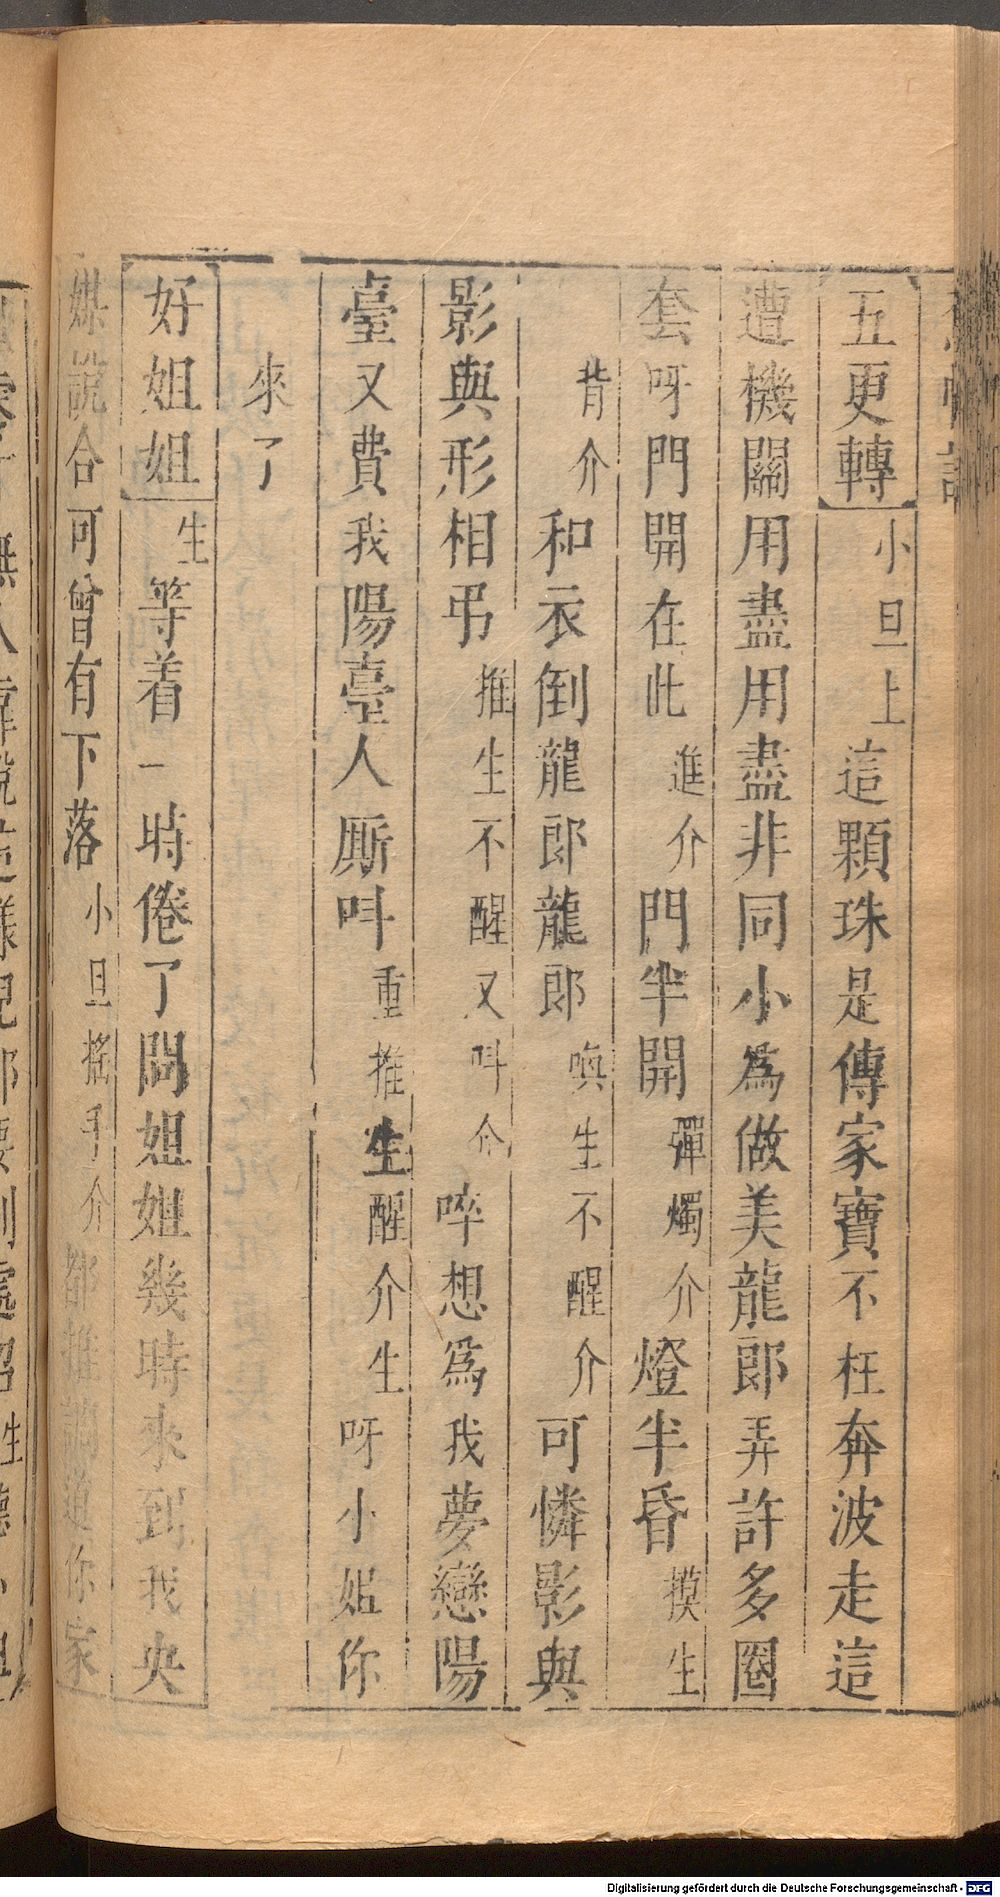 五更轉 小旦上 這顆珠是傳家寶不枉奔波走這
遭機關用盡用盡非同小為做美龍郎弄許多圈
套呀門開在此 進介 門半開 彈燭介 燈半昏 摸生
背介 和衣倒龍郎龍郎 喚生不醒介 可憐影與
影與形相弔 推生不醒又叫介 啐想為我夢戀陽
臺又費我陽臺人厮叫 重推生醒介生 呀小姐你
來了
好姐姐 生 等着一時倦了問姐姐幾時來到我央
媒說合可曾有下落 小旦搖手介 都推調道你家
Digitalisierung gefördert durch die Deutsche Forschungsgemeinschaft - DFG